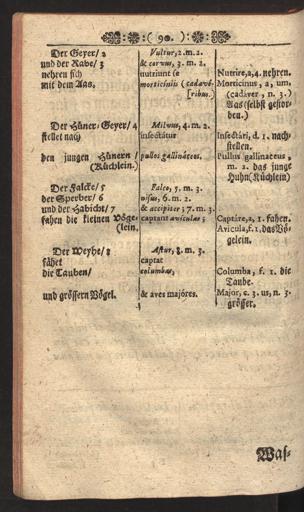 ( 90. )
Der Geyer/ 2 Vultur, 2. m. 2.
und der Rabe/ 3 & corvus, 3. m. 2.
nehren sich nutriunt se Nutrire, 2, 4. nehren.
mit dem Aas. morticiniis ( cadavé- Morticinus, a, um,
[ribus.) (cadáver, n. 3.)
Aas (selbst gestor-
ben.)
Der Hüner-Geyer/ 4 Milvus, 4. m. 2.
stellet nach insectátur Insectári, d. 1. nach-
stellen.
den jungen Hünern / pullos gallináceos, Pullus gallinaceus,
(Küchlein.) m. 2. das junge
Huhn (Küchlein)
Der Falcke/ 5 Falco, 5. m. 3.
der Sperber/ 6 nisus, 6. m. 2.
und der Habicht/ 7 & accipiter; 7. m. 3.
fahen die kleinen Vöge- captant aviculas; Captáre, 2, 1. fahen.
(lein. Avicula, f. 1. das Vö-
gelein.
Der Weyhe/ 8 Astur, 8. m. 3.
fähet captat
die Tauben/ columbas, Columba, f. 1. die
Taube.
und grössern Vögel. & aves majóres. Major, c. 3. us, n. 3.
grösser.
Was-